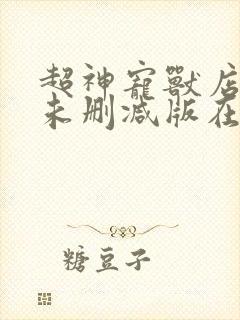 超神寵獸店
未删减版在
糖豆子